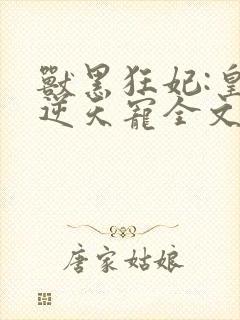 獸黑狂妃:皇
逆天寵全文
唐家姑娘